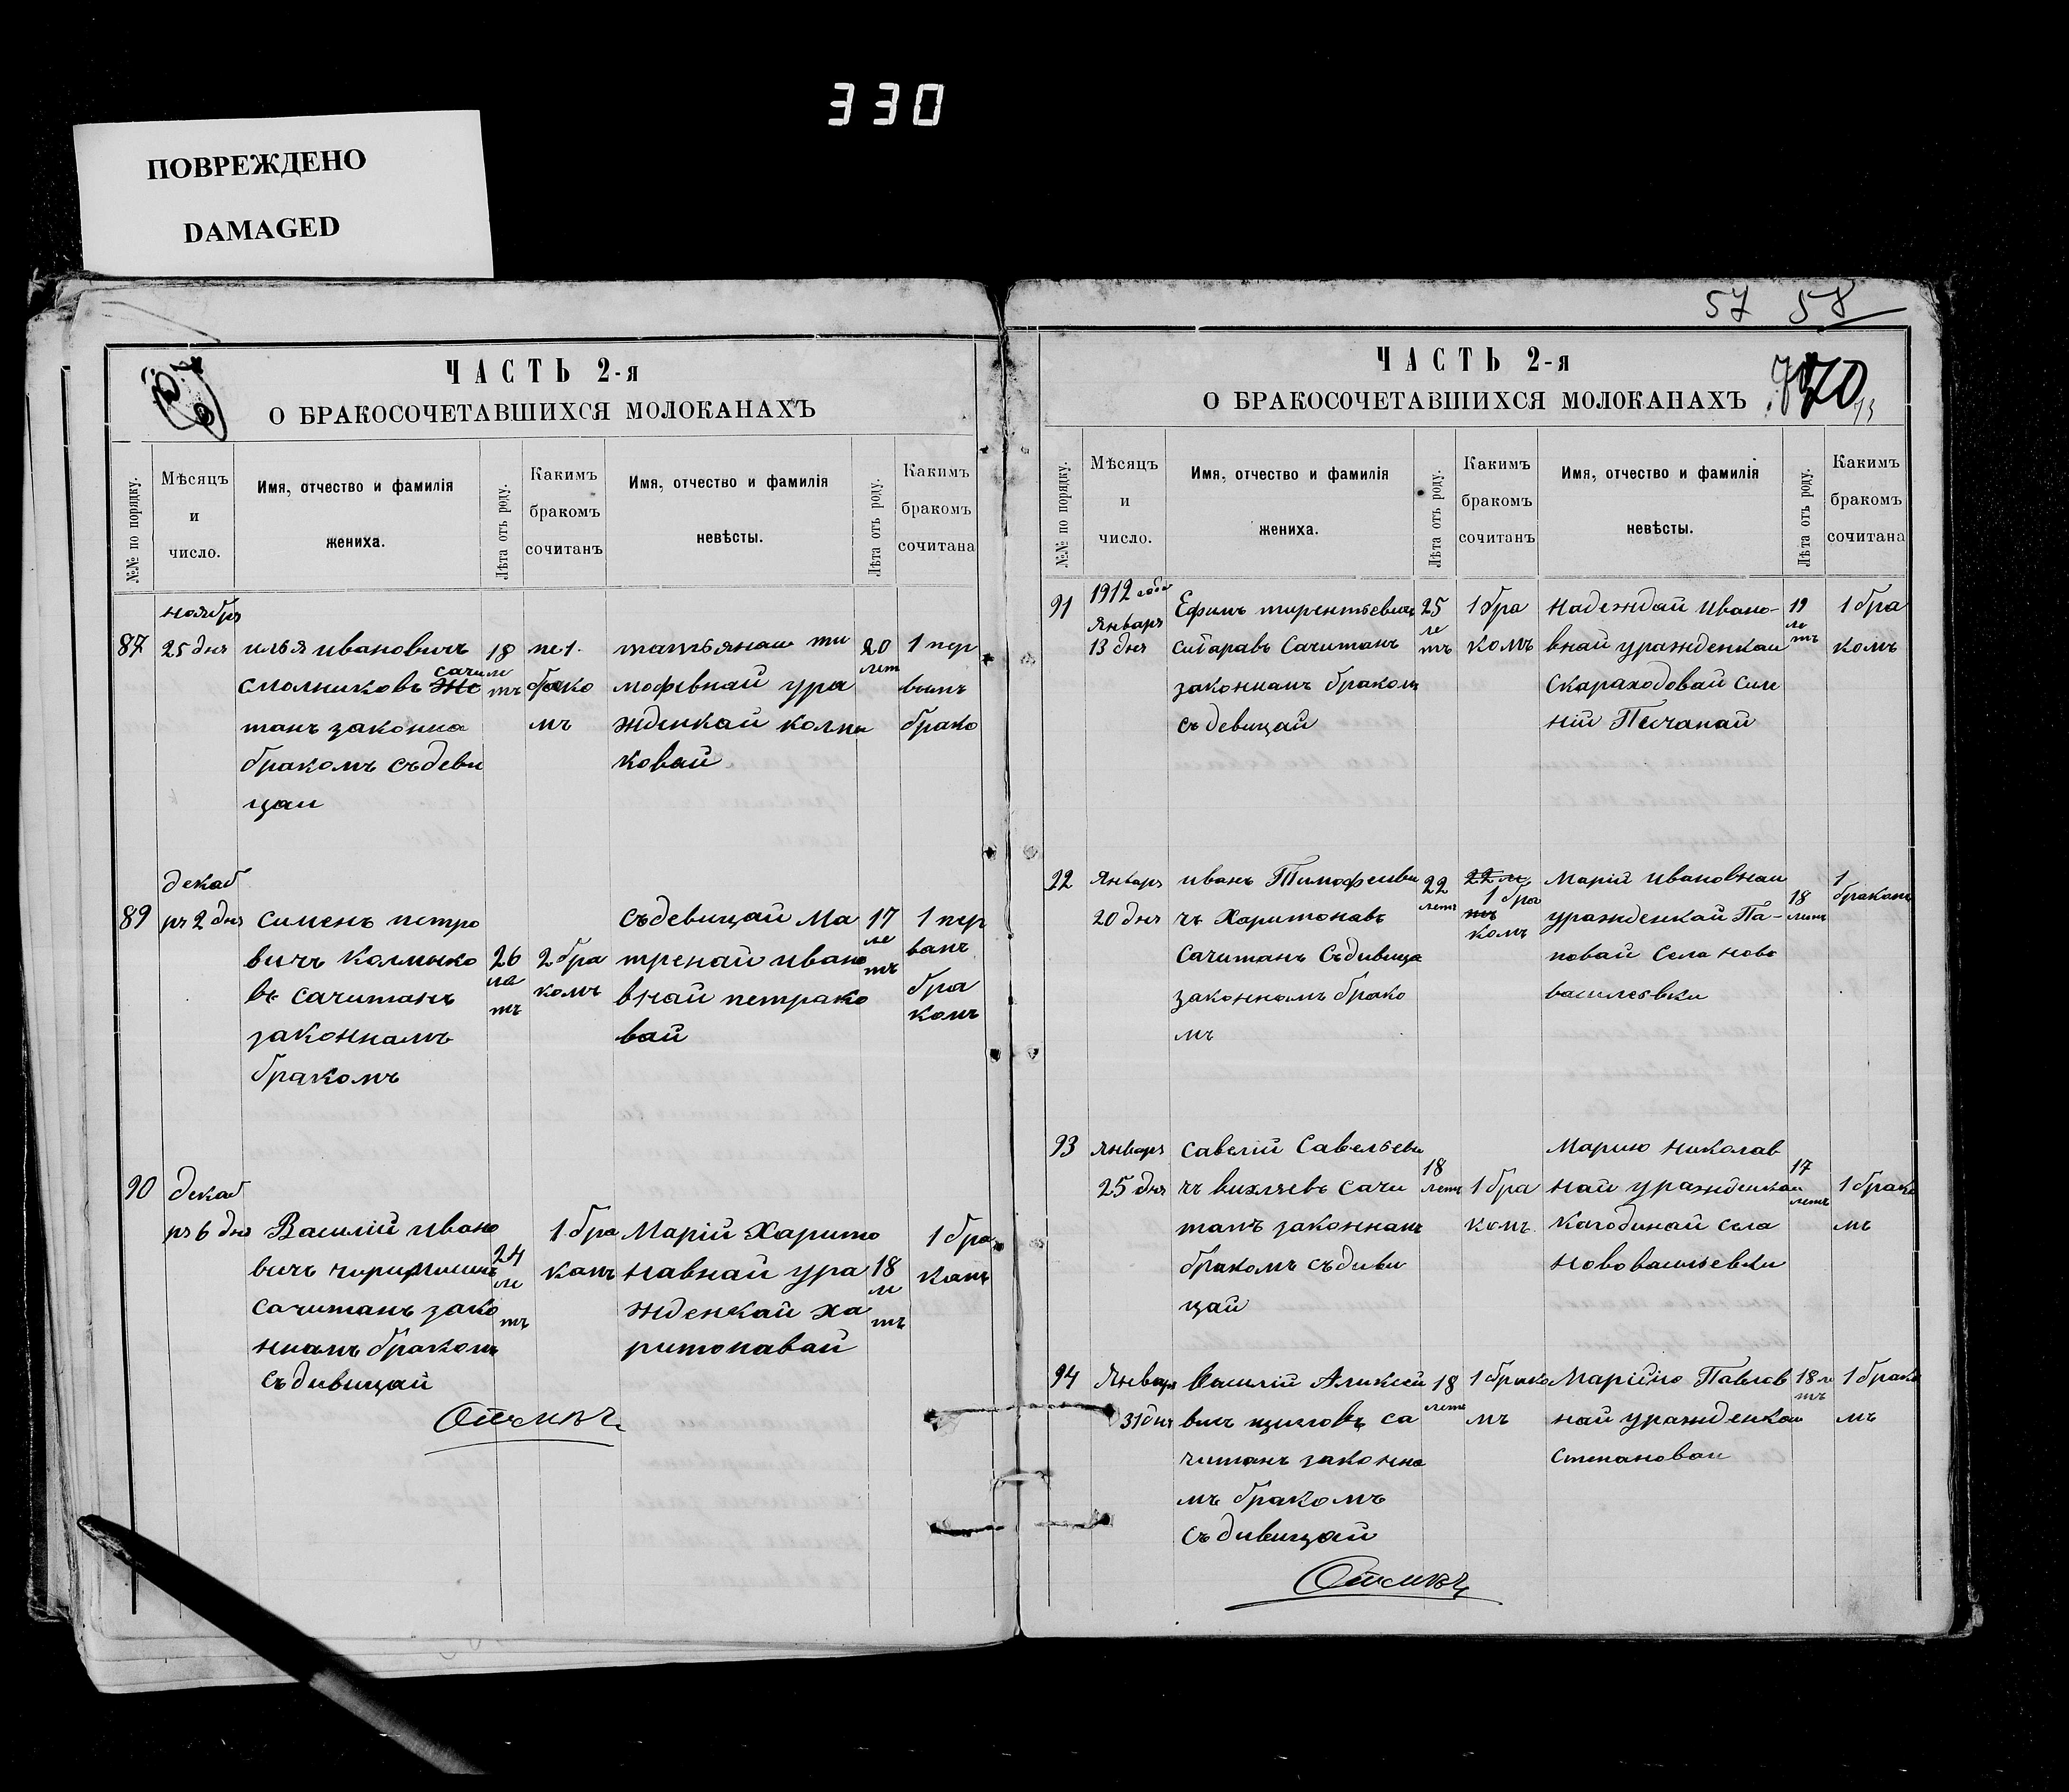 330
ПОВРЕЖДЕНО
DAMAGED
ЧАСТЬ 2-я
О БРАКОСОЧЕТАВШИХСЯ МОЛОКАНАХЪ
№№ по порядку.
Мѣсяцъ
и
число.
Имя, отчество и фамилія
жениха.
Лѣта отъ роду.
Какимъ
бракомъ
сочитанъ
Имя, отчество и фамилія
невѣсты.
Лѣта отъ роду.
Какимъ
бракомъ
сочитана
87
ноябрь
25 дня
илья ивановичъ
смолниковъ сачи
танъ законна
бракомъ съ деви
цаи
18
ле
тъ
пе1.
брако
мъ
татьянаи ти
мофевнай ура
жденкай колпа
ковай
20
лет
1 пер
вымъ
брако
89
декаб
рь 2 дня
сименъ петро
вичъ колмыко
въ сачитанъ
законнамъ
бракомъ
26
ла
тъ
2 бра
комъ
съ девицай Ма
тренай ивано
внай петрако
вай
17
ле
тъ
1 пер
вамъ
бра
комъ
90
декаб
рь 6 дня
Василій ивано
вичъ
сачитанъ зако
ннамъ бракомъ
съ дивицай
24
ле
тъ
1 бра
камъ
Марій Харито
навнай ура
жденкай ха
ритонавай
18
ле
тъ
1 бра
камъ
57 58
70
ЧАСТЬ 2-я
О БРАКОСОЧЕТАВШИХСЯ МОЛОКАНАХЪ
№№ по порядку.
Мѣсяцъ
и
число.
Имя, отчество и фамилія
жениха.
Лѣта отъ роду.
Какимъ
бракомъ
сочитанъ
Имя, отчество и фамилія
невѣсты.
Лѣта отъ роду.
Какимъ
бракомъ
сочитана
91
1912 года
Январь
13 дня
Ефимъ тирентьевичъ
Сачитанъ
законнамъ бракомъ
съ девицай
25
ле
тъ
1 бра
комъ
Надеждай ивано-
внай уражденкаи
Скараходовай Силе
ній Песчанай
19
ле
тъ
1 бра
комъ
92
Январь
20 дня
иванъ Тимофеиви
чъ Харитонавъ
Сачитанъ Съ дивица
законномъ брако
мъ
22
летъ
22 ле
1 бра
тъ
комъ
Марій ивановнаи
уражденкай Па-
повай Села ново
василевки
18
летъ
1
бракамъ
93
Январь
25 дня
Савелій Савельеви
чъ вихляевъ сачи
танъ законнамъ
бракомъ съ диви
цай
18
летъ
1 бра
комъ
Марию Николав
най уражденкаи
кагодинай села
Нововасильевки
17
летъ
1 брако
мъ
94
Январь
31 дня
Василій Аликсеи
вичъ са
читанъ законна
мъ бракомъ
съ дивицай
18
летъ
1 брако
мъ
Марійю Павлов
най уражденкаи
степановаи
18 ле
тъ
1 брако
мъ